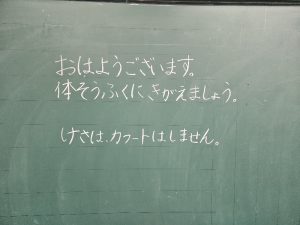 おはようございます。
体そうふくにきがえましょう。
けさは、カフートはしません。